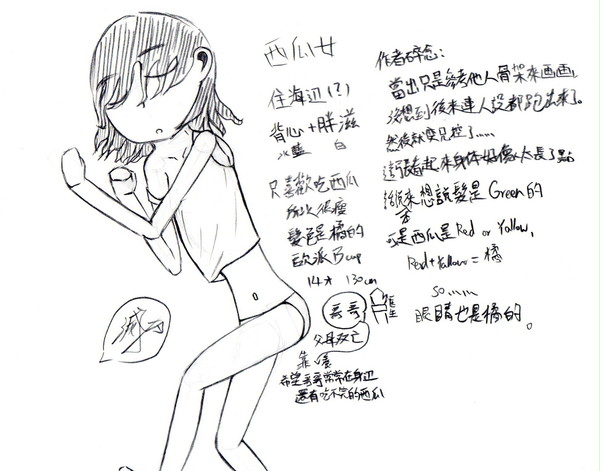 西瓜女
住海辺(?)
背心+胖滋
水藍 白
只喜歡吃西瓜
所以很瘦
髮色是橘的
歐派B cup
14才 130cm
哥哥
父母双亡
希望哥哥常常在身辺
還有吃不完的西瓜
作者碎念:
當出只是參考他人骨架來画画,
沒想到後來連人設都跑出來了。
然後就變兄控了……
起來身体好像太長了點
來想說髮是Green的
可是西瓜是Red or Yellow,
Red+Yellow=橘
so……
眼睛也是橘的。